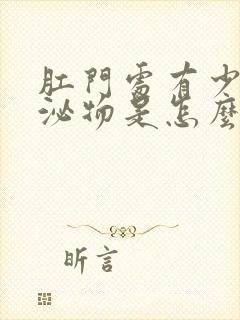 肛門處有少
泌物是怎麼
昕言